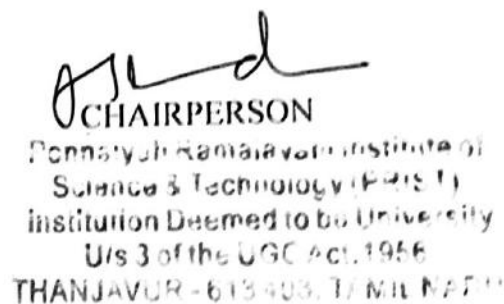 CHAIRPERSON
Ponnaiyah Ramajayam Institute of
Science & Technology (PRIST)
Institution Deemed to be University
U/s 3 of the UGC Act, 1956
THANJAVUR - 613 403, TAMIL NADU